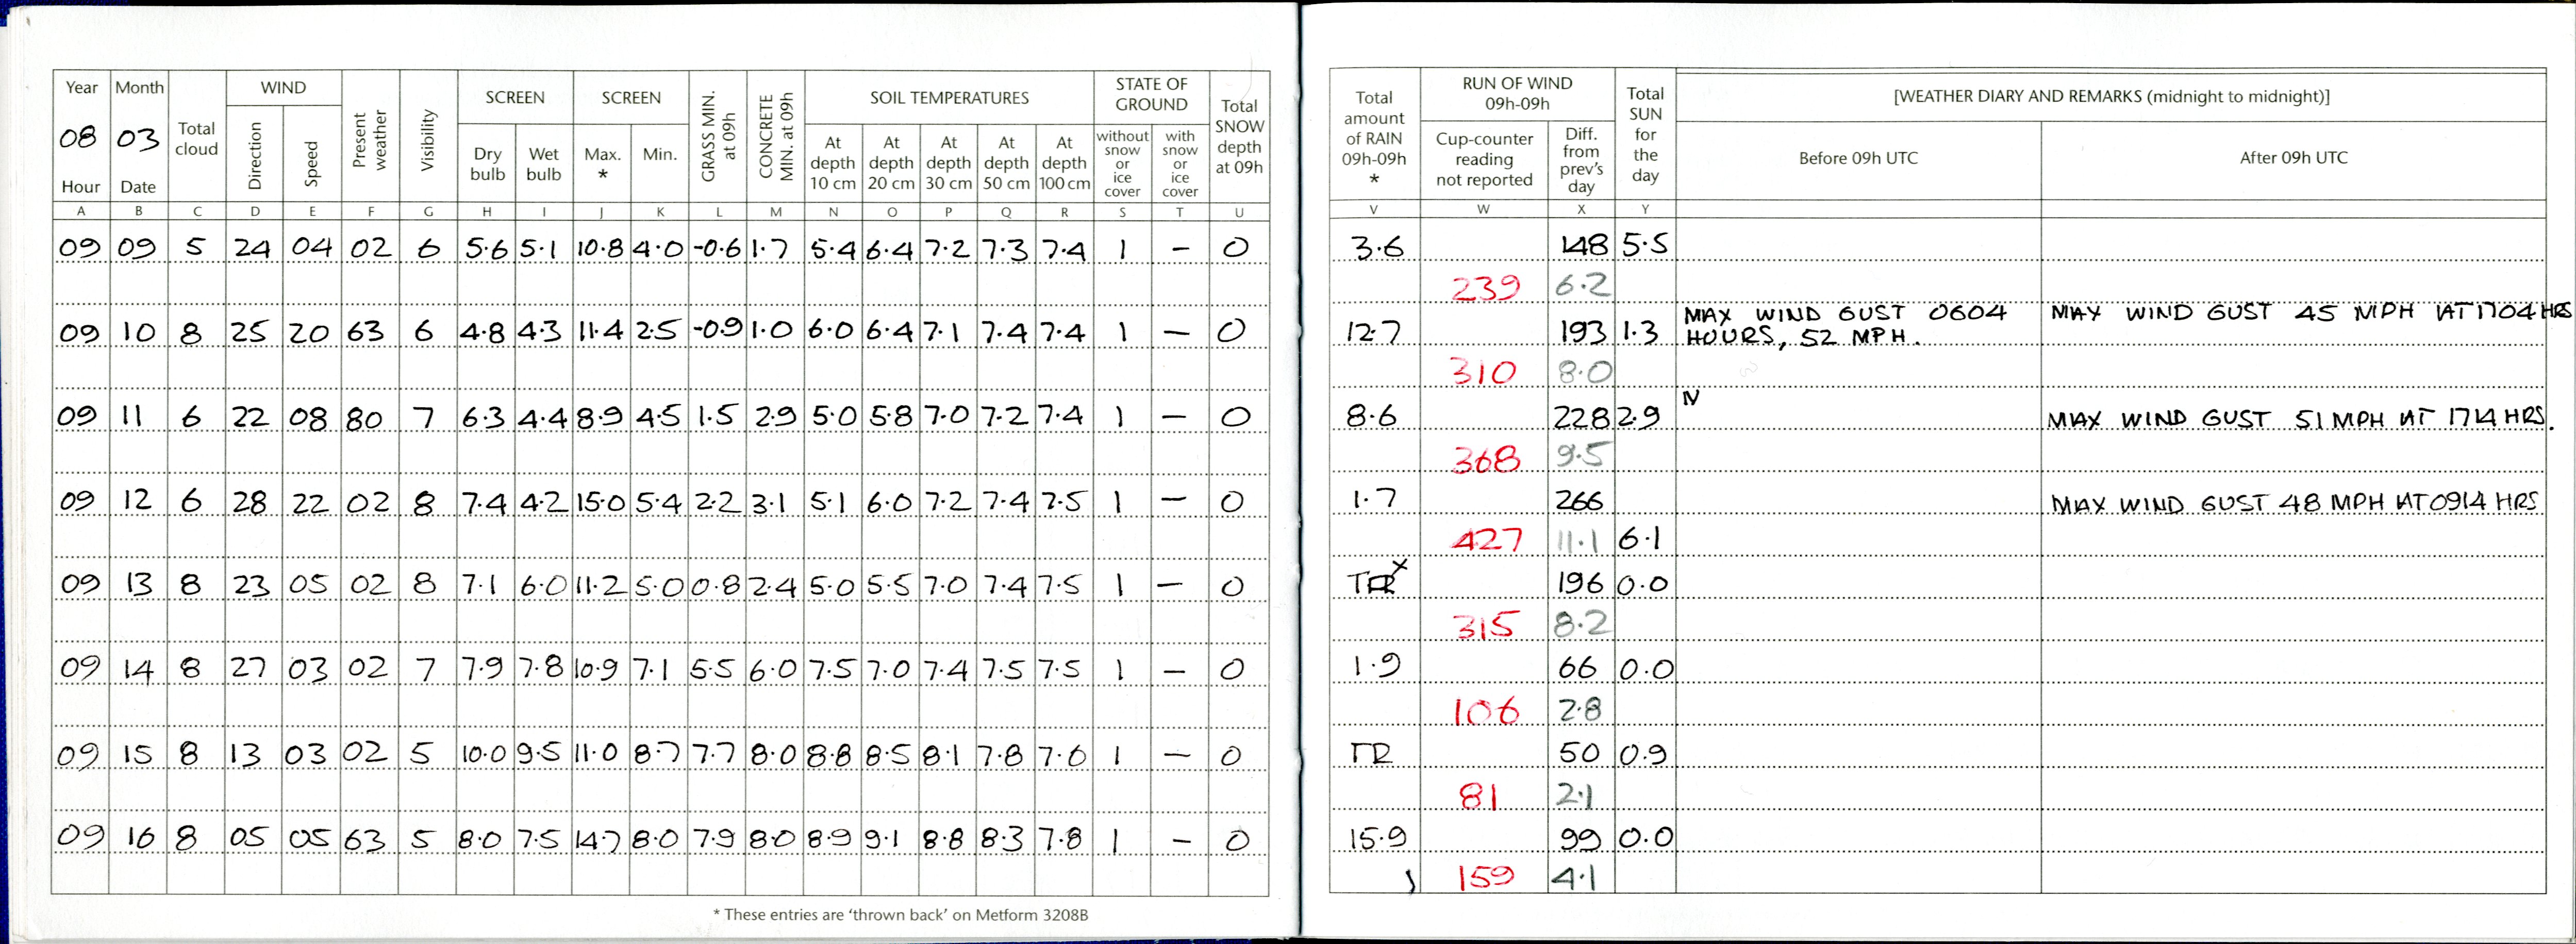 Year Month Total cloud WIND Present weather Visibility SCREEN SCREEN GRASS MIN. at 09h CONCRETE MIN. at 09h SOIL TEMPERATURES STATE OF GROUND Total SNOW depth at 09h
08 03 Direction Speed Dry bulb Wet bulb Max. * Min. At depth 10 cm At depth 20 cm At depth 30 cm At depth 50 cm At depth 100 cm without snow or ice cover with snow or ice cover
Hour Date
A B C D E F G H I J K L M N O P Q R S T U
09 09 5 24 04 02 6 5.6 5.1 10.8 4.0 -0.6 1.7 5.4 6.4 7.2 7.3 7.4 1 – 0
09 10 8 25 20 63 6 4.8 4.3 11.4 2.5 -0.9 1.0 6.0 6.4 7.1 7.4 7.4 1 – 0
09 11 6 22 08 80 7 6.3 4.4 8.9 4.5 1.5 2.9 5.0 5.8 7.0 7.2 7.4 1 – 0
09 12 6 28 22 02 8 7.4 4.2 15.0 5.4 2.2 3.1 5.1 6.0 7.2 7.4 7.5 1 – 0
09 13 8 23 05 02 8 7.1 6.0 11.2 5.0 0.8 2.4 5.0 5.5 7.0 7.4 7.5 1 – 0
09 14 8 27 03 02 7 7.9 7.8 10.9 7.1 5.5 6.0 7.5 7.0 7.4 7.5 7.5 1 – 0
09 15 8 13 03 02 5 10.0 9.5 11.0 8.7 7.7 8.0 8.8 8.5 8.1 7.8 7.6 1 – 0
09 16 8 05 05 63 5 8.0 7.5 14.7 8.0 7.9 8.0 8.9 9.1 8.8 8.3 7.8 1 – 0
* These entries are ‘thrown back’ on Metform 3208B
Total amount of RAIN 09h-09h * RUN OF WIND 09h-09h Total SUN for the day [WEATHER DIARY AND REMARKS (midnight to midnight)]
Cup-counter reading not reported Diff. from prev's day Before 09h UTC After 09h UTC
V W X Y
3.6 148 5.5
239 6.2
MAX WIND GUST 0604 MAX WIND GUST 45 MPH AT 1704 HRS
12.7 193 1.3 HOURS, 52 MPH.
310 8.0
8.6 228 2.9 MAX WIND GUST 51 MPH AT 1714 HRS.
368 9.5
1.7 266 MAX WIND GUST 48 MPH AT 0914 HRS
427 11.1 6.1
TR x 196 0.0
315 8.2
1.9 66 0.0
106 2.8
TR 50 0.9
81 2.1
15.9 99 0.0
159 4.1